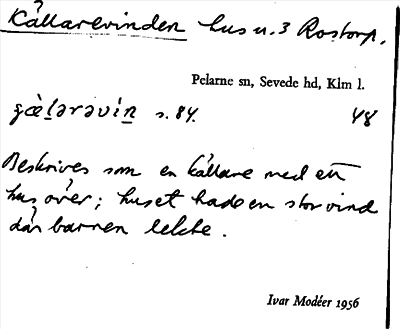 Källarevinden hus n. 3 Rostorp.
Pelarne sn, Sevede hd, Klm l.
s. 84. 48
Beskrives som en källare med ett
hus över; huset hade en stor vind
där barnen lekte.
Ivar Modéer 1956